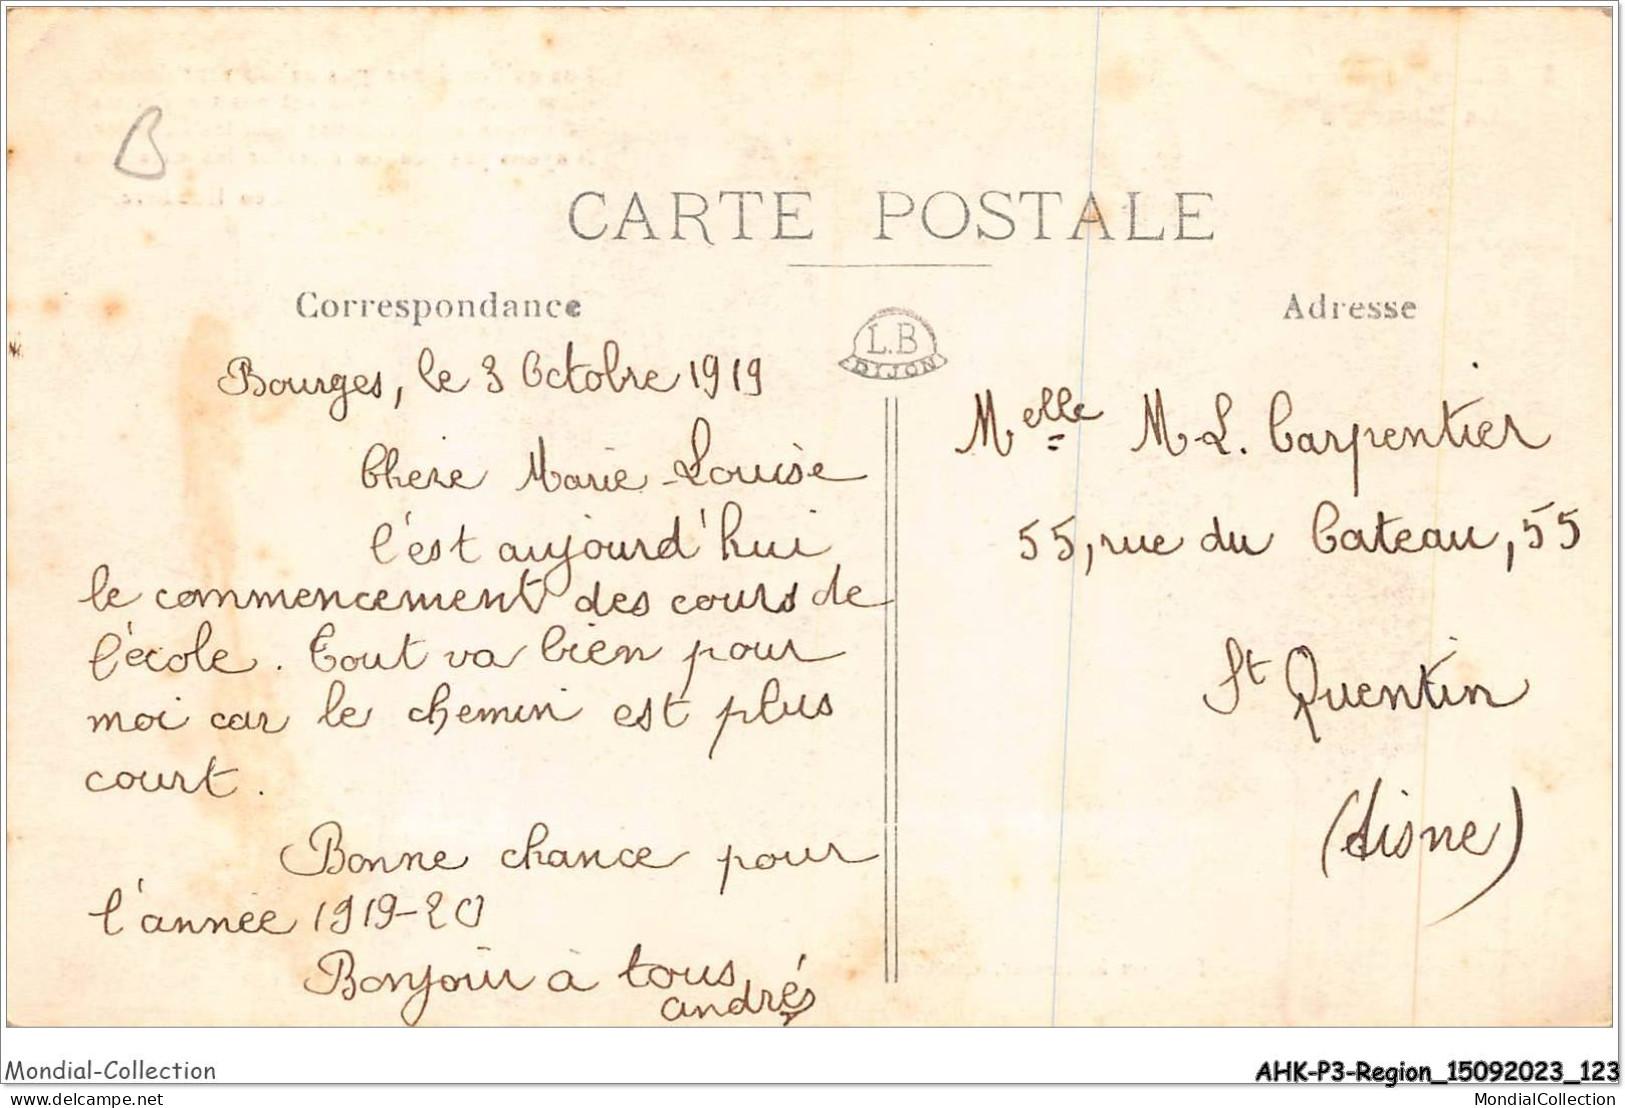 B
CARTE POSTALE
Correspondance
Adresse
L.B
DIJON
Bourges, le 3 Octobre 1919
Chère Marie-Louise
C'est aujourd'hui
le commencement des cours de
l'école. Tout va bien pour
moi car le chemin est plus
court.
Bonne chance pour
l'année 1919-20
Bonjour à tous
andré
Melle M-L. Carpentier
55, rue du Cateau, 55
St Quentin
(Aisne)
Mondial-Collection
AHK-P3-Region_15092023_123
delcampe.net
MondialCollection